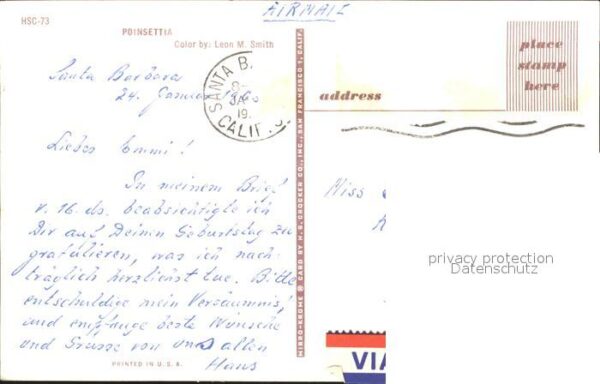 HSC-73
POINSETTIA
Color by: Leon M. Smith
AIRMAIL
place
stamp
here
address
SANTA B.
CALIF.
Santa Barbara
24. Januar
Liebes Emmi!
In meinem Brief
v. 16. ds. beabsichtigte ich
Dir auf Deinen Geburtstag zu
gratulieren, was ich nach-
träglich herzlichst tue. Bitte
entschuldige mein Versäumnis,
und empfange beste Wünsche
und Grüsse von uns allen
Hans
PRINTED IN U.S.A.
MIRRO-KROME ® CARD BY H. S. CROCKER CO., INC., SAN FRANCISCO 1, CALIF.
Miss
privacy protection
Datenschutz
VIA